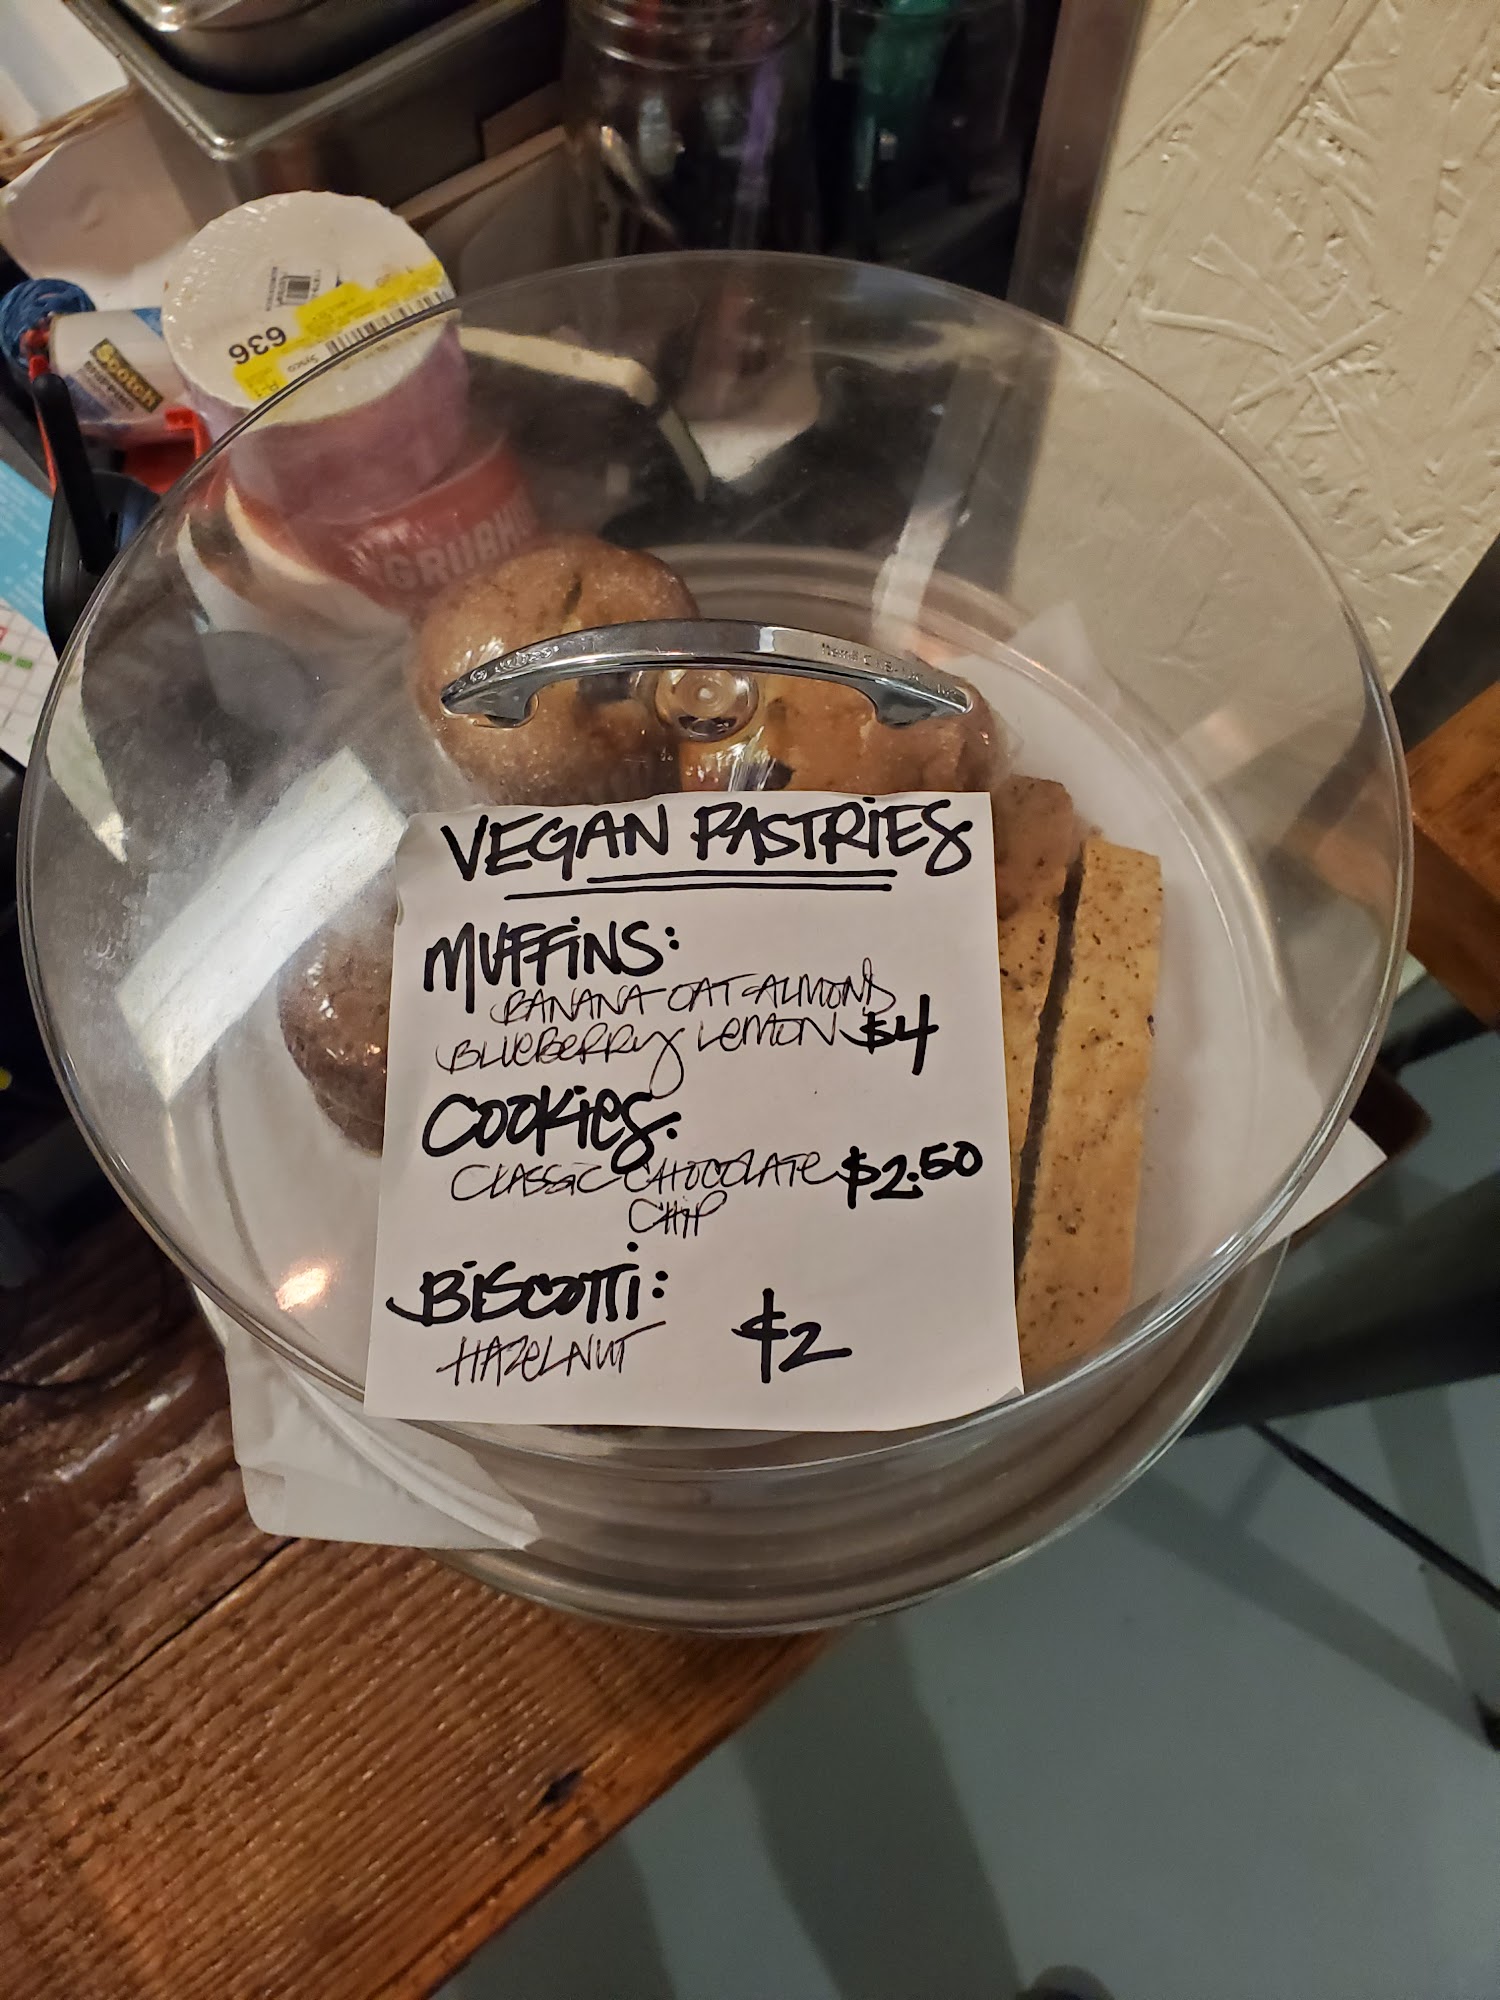 636
Sysco
Scotch
GRUBHU
VEGAN PASTRIES
MUFFINS:
BANANA OAT ALMOND
BLUEBERRY LEMON $4
COOKIES:
CLASSIC CHOCOLATE $2.50
CHIP
BISCOTTI:
HAZELNUT $2